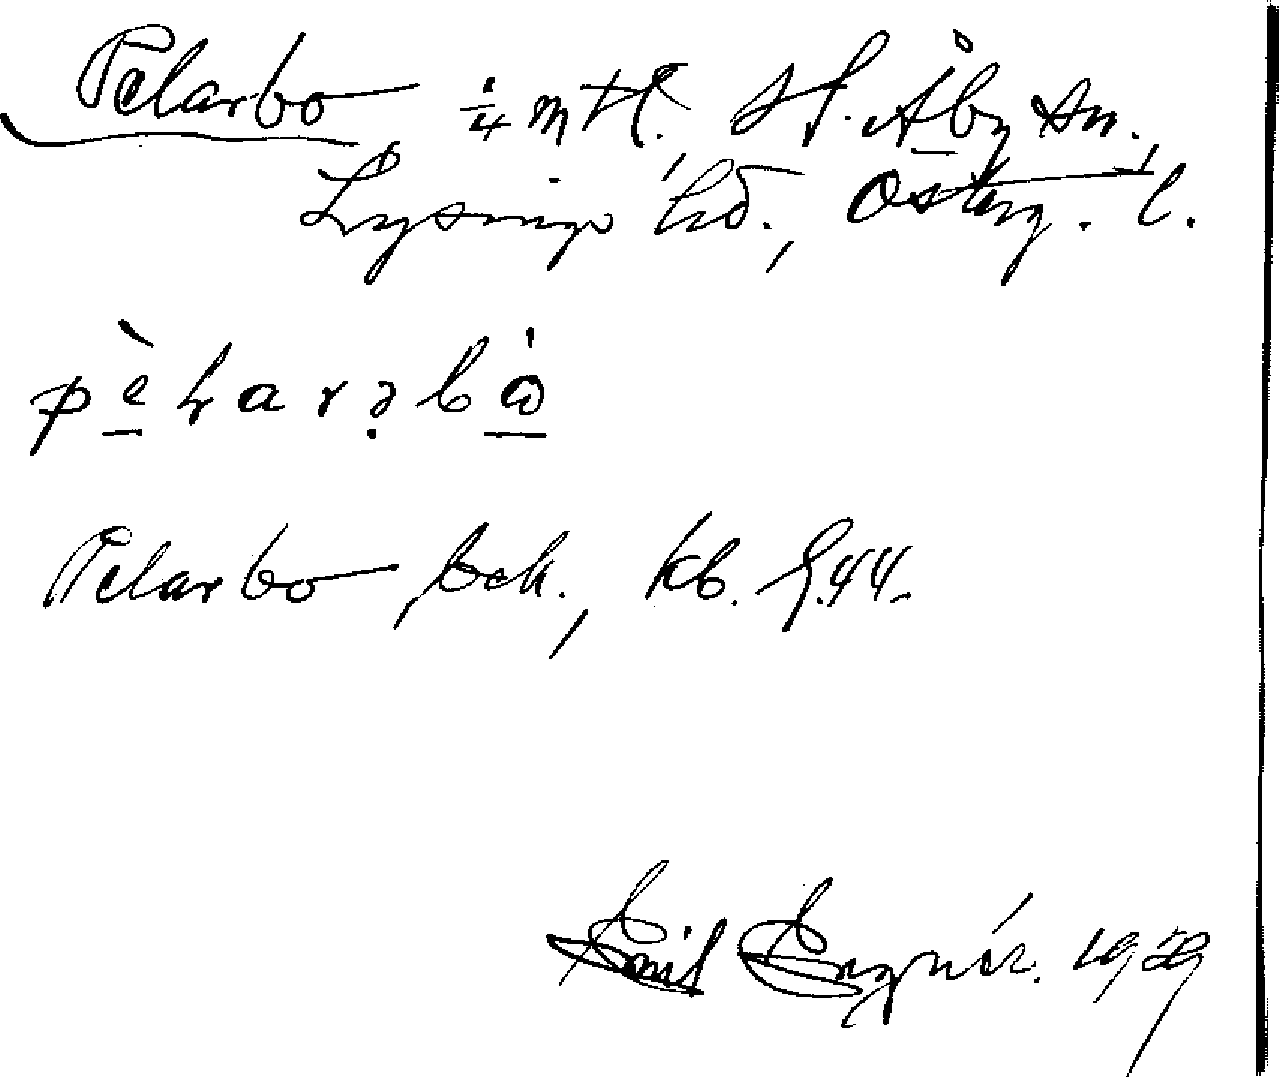 Pelarbo ¼ mtl. St. Åby sn.,
Lysings hd., Österg. l.
pèlarəbó
Pelarbo, bek., kb. § 44.
Emil Egnér. 1929